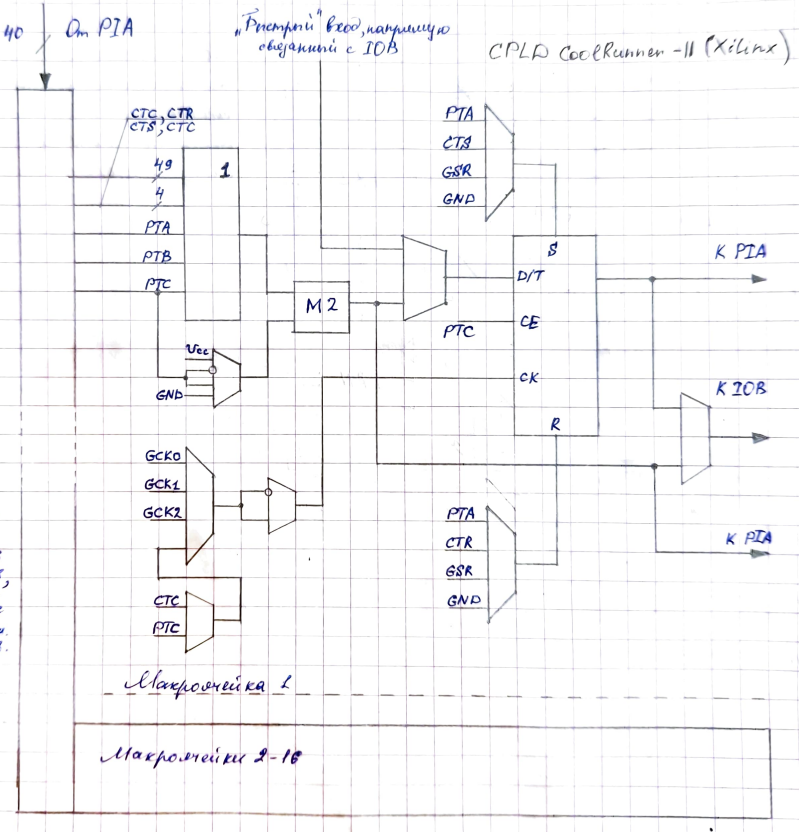 40 От PIA
„Быстрый" вход, напрямую
связанный с IOB
CPLD CoolRunner-II (Xilinx)
CTC, CTR
CTS, CTC
49
4
PTA
PTB
PTC
1
PTA
CTS
GSR
GND
M2
Vcc
GND
S
D/T
CE
CK
R
PTC
К PIA
К IOB
К PIA
GCK0
GCK1
GCK2
CTC
PTC
PTA
CTR
GSR
GND
Макроячейка 1
Макроячейки 2-16